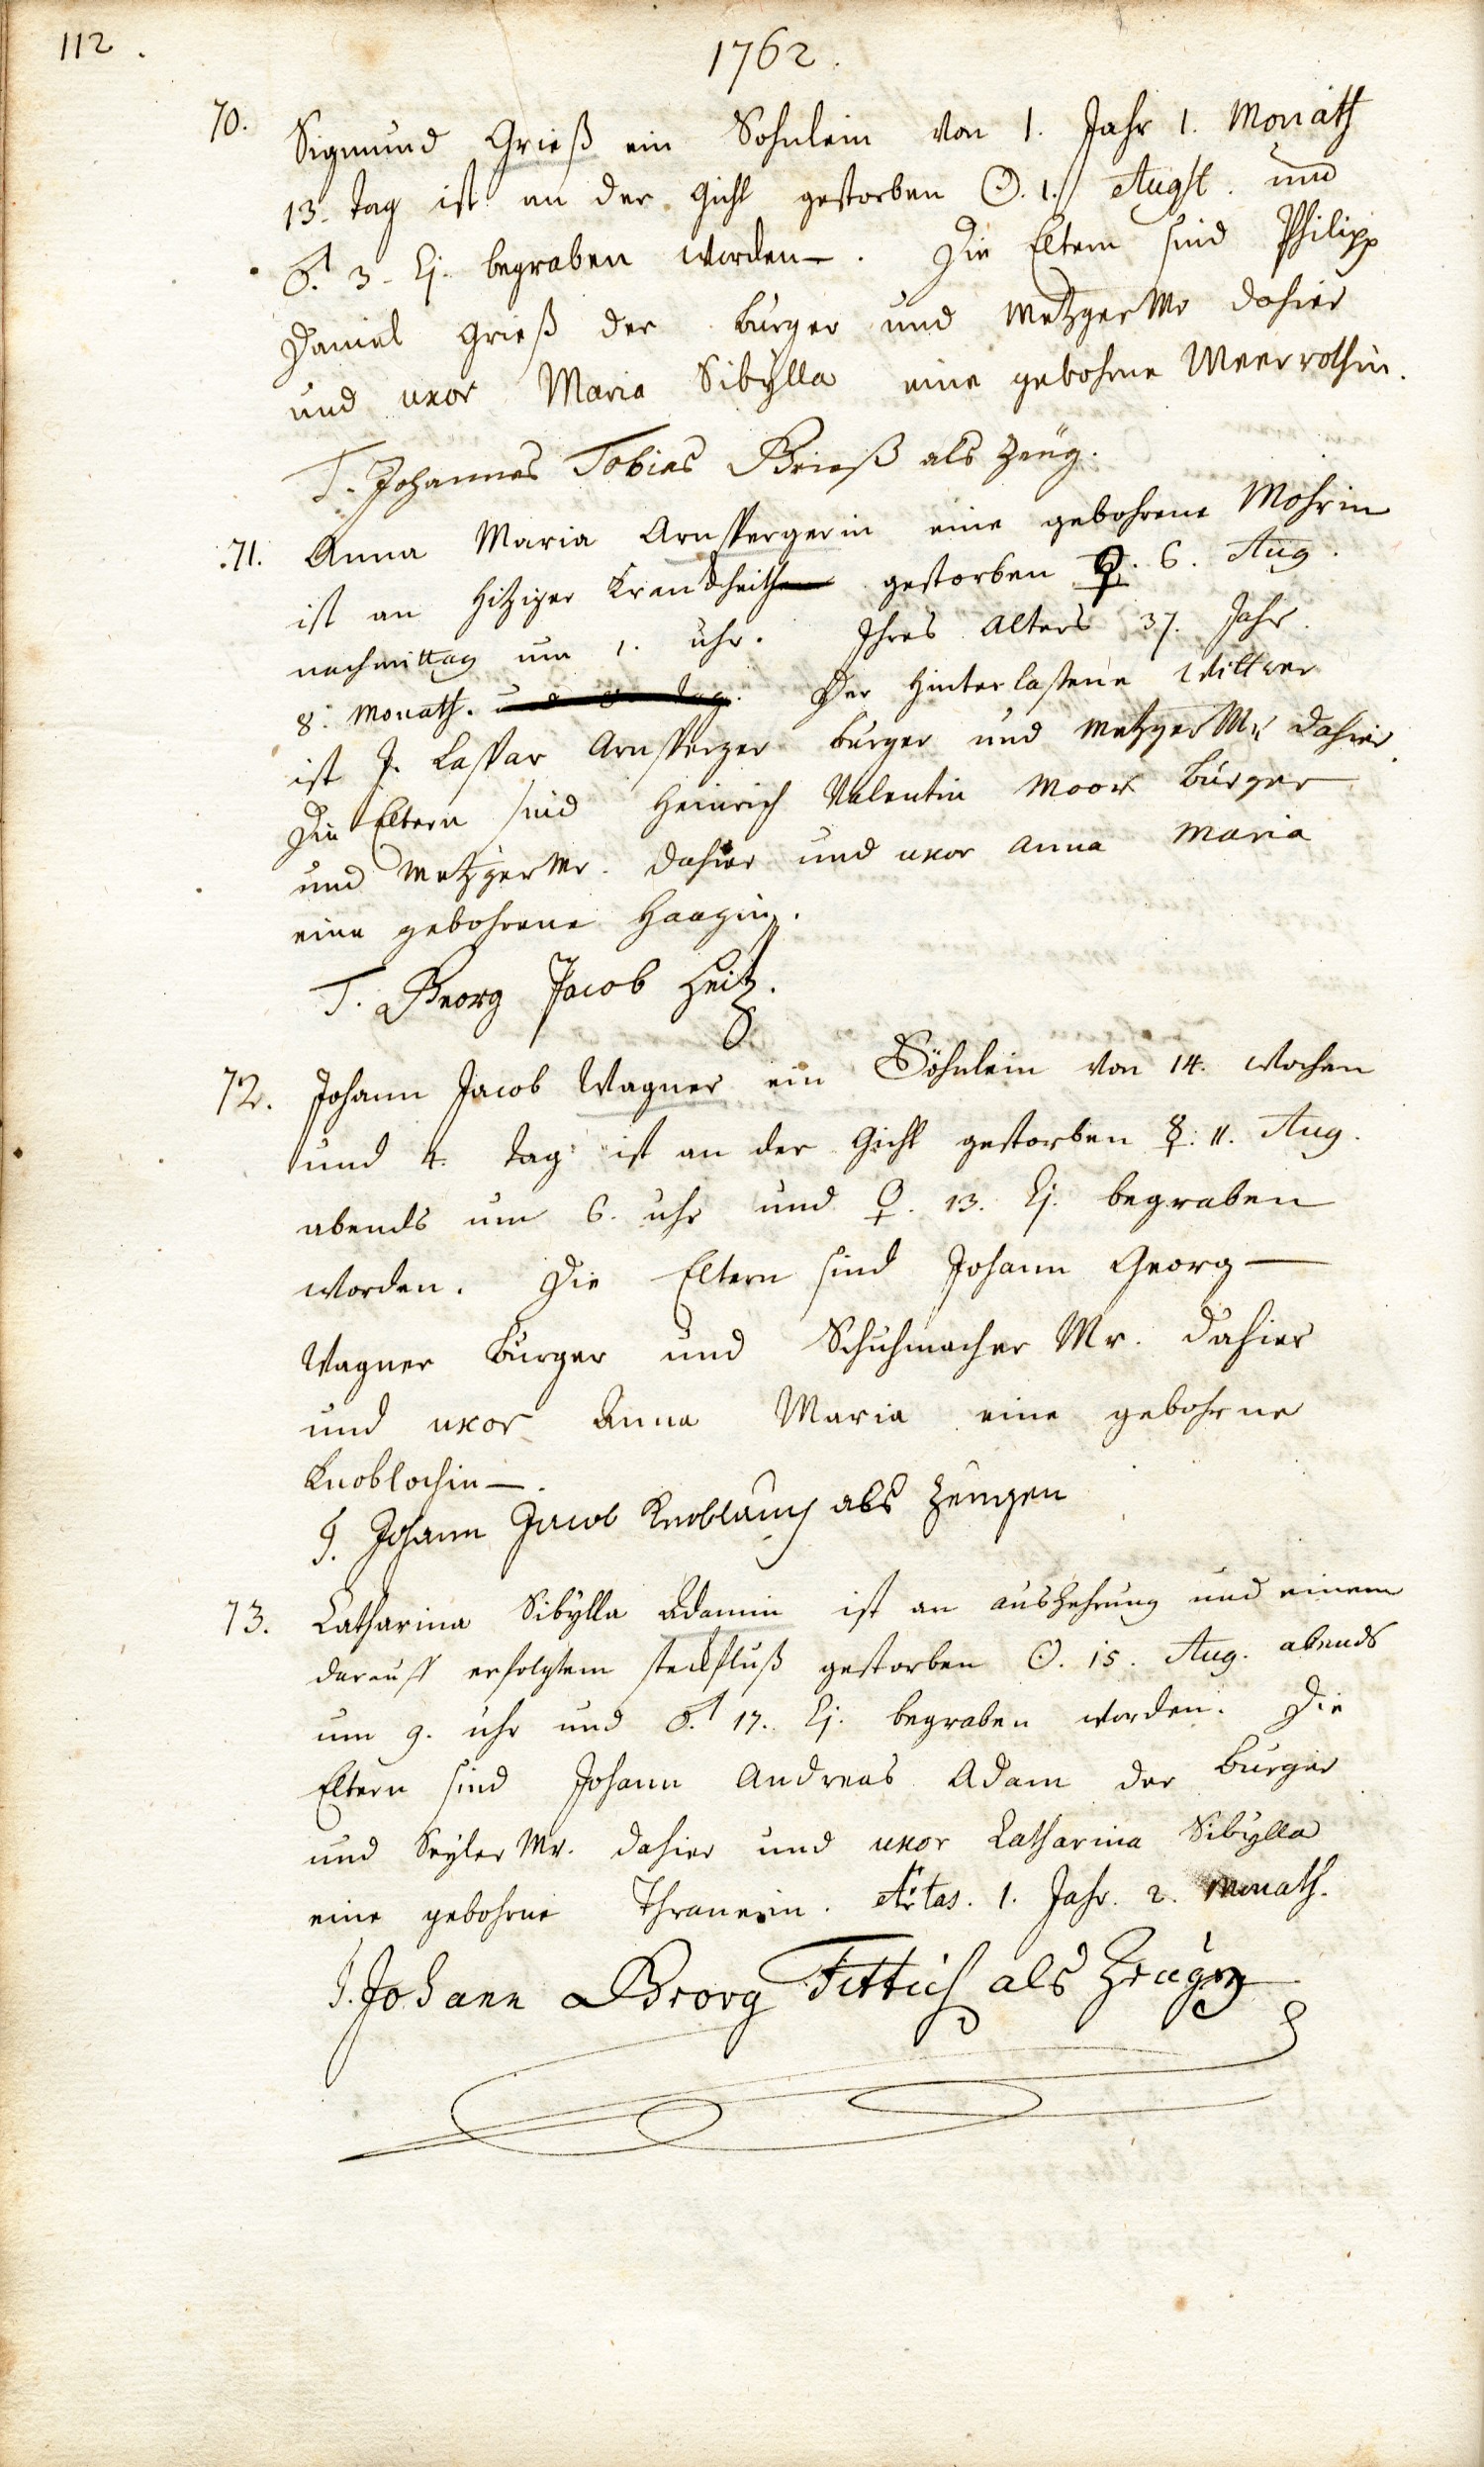 112.
1762.
70. Sigmund Grieß ein Sohnlein von 1. Jahr 1. Monath
13. tag ist an der Gicht gestorben ☉. 1. Augst. und
♂. 3. Ej. begraben worden. Die Eltern sind Philipp
Daniel Grieß der burger und Metzger Mr dahier
und uxor Maria Sibÿlla eine gebohrne Meerrothin.
T. Johannes Tobias Grieß als Zeüg.
71. Anna Maria Arnspergerin eine gebohrene Mohrin
ist an hitziger Krandheith gestorben ♀. 6. Aug.
nachmittag um 1. uhr. Ihres alters 37. Jahr.
8. Monath. Der hinterlaßene Wittwer
ist J. Caspar Arnsperger burger und Metzger Mr dahier.
Die Eltern sind Heinrich Valentin Moor burger
und Metzger Mr. dahier und uxor Anna Maria
eine gebohrene Haagin.
T. Georg Jacob Heitz.
72. Johann Jacob Wagner ein Söhnlein von 14. wochen
und 4. tag ist an der Gicht gestorben ☿. 11. Aug.
abends um 6. uhr und ♀. 13. Ej. begraben
worden. Die Eltern sind Johann Georg
Wagner burger und Schuhmacher Mr. dahier
und uxor Anna Maria eine gebohrne
Knoblochin.
T. Johann Jacob Knoblauch als Zeugen
73. Catharina Sibÿlla Adamin ist an auszehrung und einem
darauff erfolgtem steckfluß gestorben ☉. 15. Aug. abends
um 9. uhr und ♂. 17. Ej. begraben worden. Die
Eltern sind Johann Andreas Adam der burger
und Seyler Mr. dahier und uxor Catharina Sibÿlla
eine gebohrne Thranerin. Ætas. 1. Jahr. 2. Monath.
T. Johann Georg Fittich als Zeüge